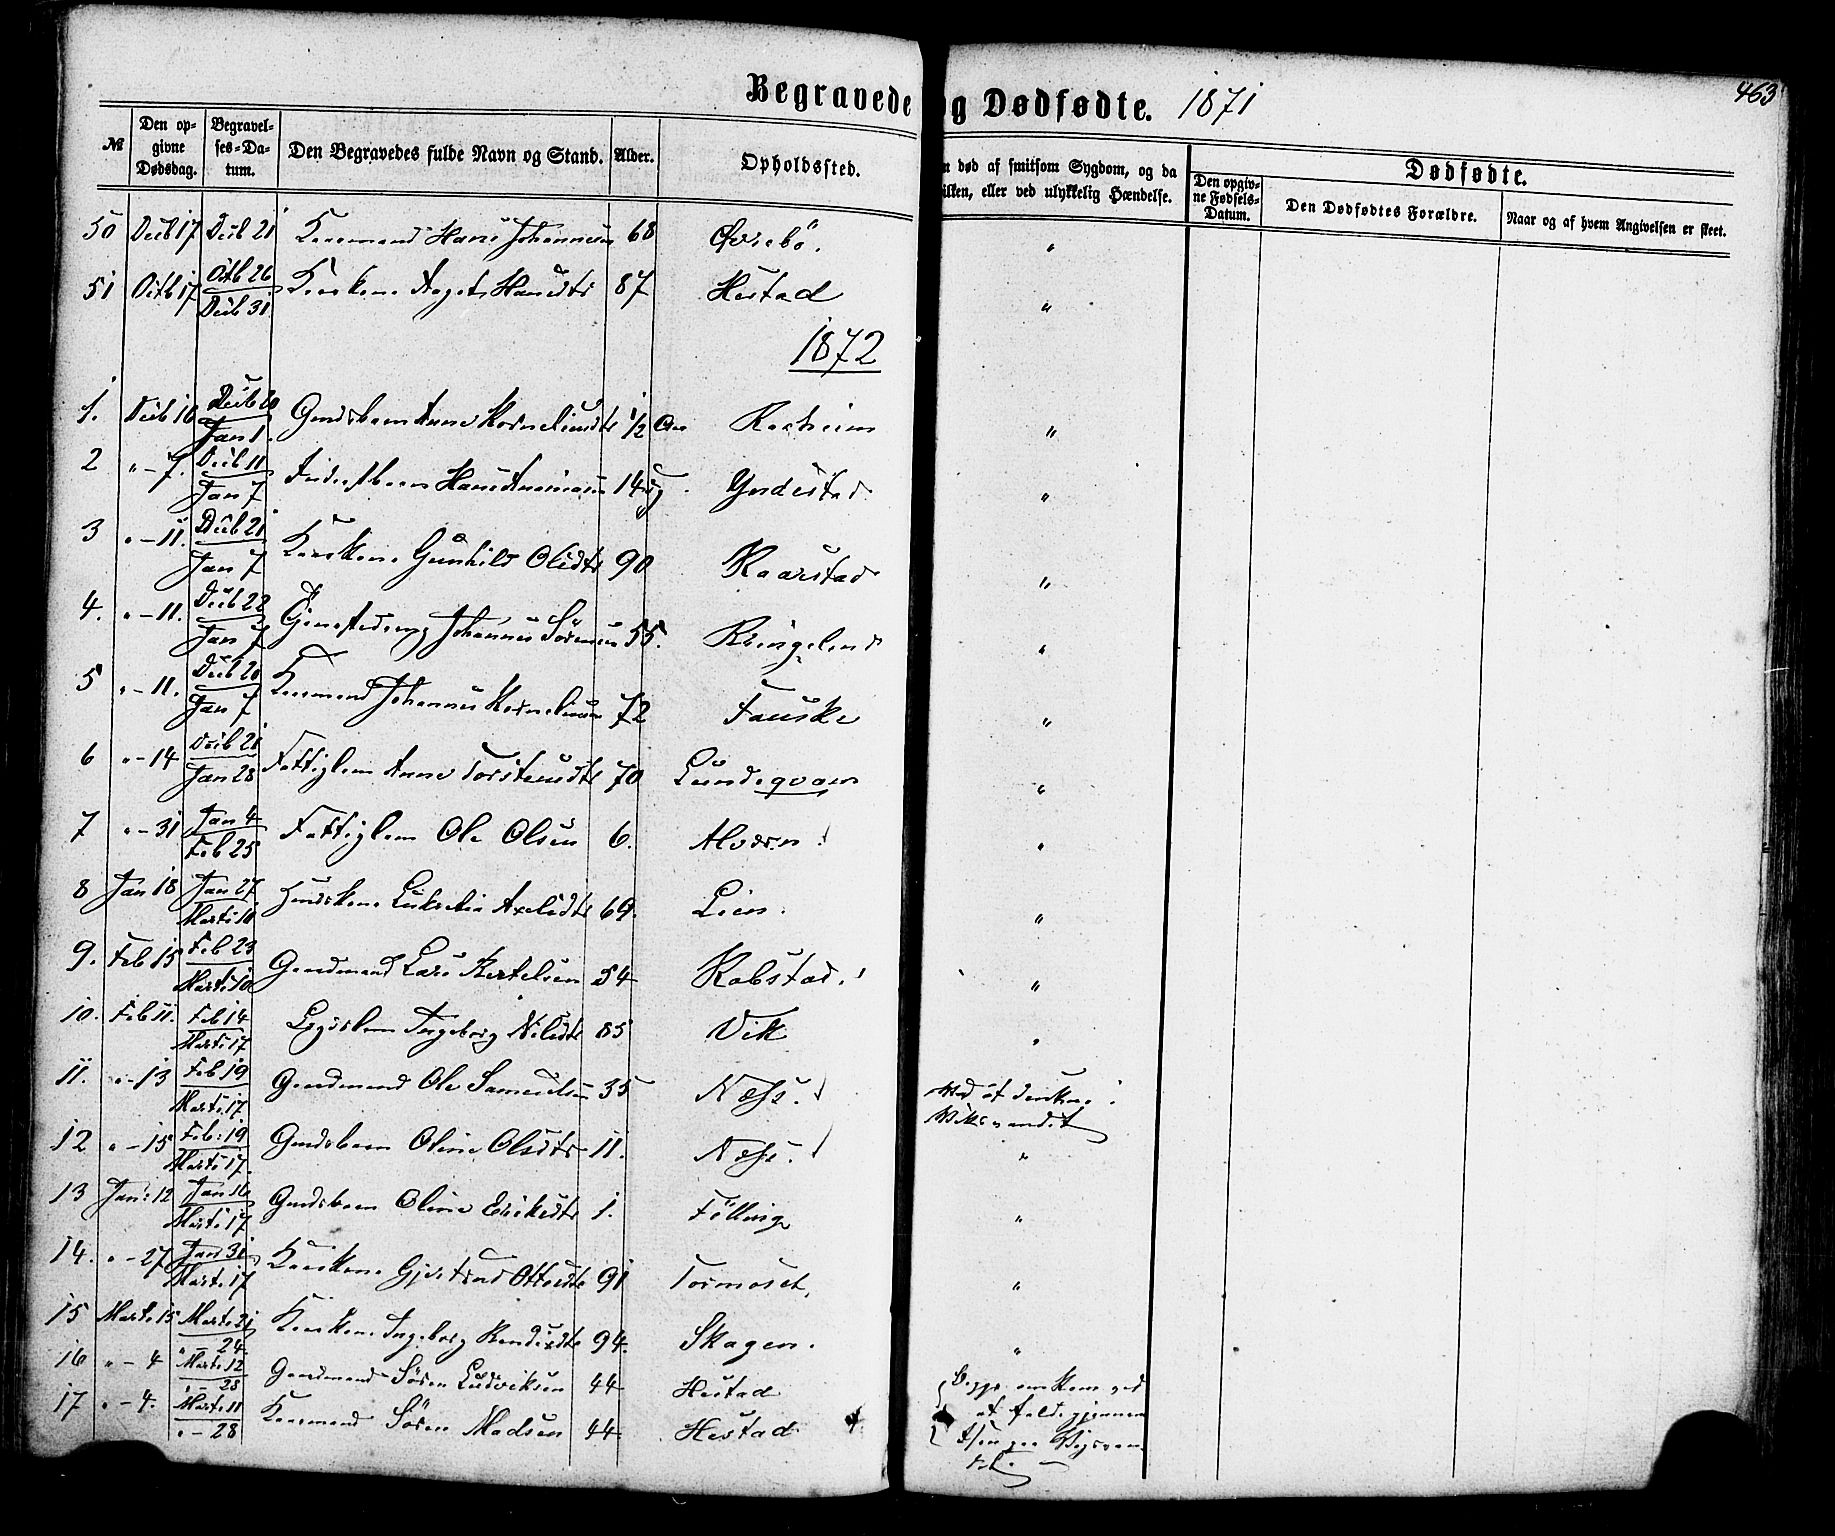 Begravede og Dødfødte. 1871
463
№
Den opgivne Dødsdag.
Begravelses-Datum.
Den Begravedes fulde Navn og Stand.
Alder.
Opholdssted.
død af smitsom Sygdom, og da
hvilken, eller ved ulykkelig Hændelse.
Dødfødte.
Den opgivne Fødsels-Datum.
Den Dødfødtes Forældre.
Naar og af hvem Angivelsen er skeet.
50 Decb 17 Decb 21 Kaarmand Hans Johannesen 68 Øvrebø. "
51 Octb 17 Octb 26 Decb 31 Kaarkone Hansdtr 87 Hestad "
1872
1. Decb 16 Decb 20 Jan 1. Gmdsbarn Anne Korneliusdtr 1/2 Aar "
2 " - 7. Decb 11 Jan 7 Hans 14 Yndestad "
3 " - 11. Decb 21 Jan 7 Kaarkone Gunhild Olsdtr 90 Kaarstad "
4. " - 11. Decb 22 Jan 7 Johannes Sørensen 55. Kringeland "
5 " - 11. Decb 20 Jan 7 Kaarmand Johannes Korneliussen 72 Fauske "
6 " - 14 Decb 21 Jan 28 Fattiglem Anne Torsteinsdtr 70 Lundeqvam "
7 " - 31 Jan 4 Feb 25 Fattiglem Ole Olsen 6. "
8 Jan 18 Jan 27 Marts 10 Axelsdtr 69. Lien. "
9. Feb 15 Feb 23 Marts 10 Gaardmand Lars Bertelsen 54 Kobstad. "
10. Feb 11. Feb 14 Marts 17 Ingeborg Nilsdtr 85 Vik "
11. " - 13 Feb 19 Marts 17 Gaardmand Ole Samuelsen 35 Næss. Ved at drukne i
Viksvandet
12 " - 15 Feb: 19 Marts 17. Gmdsbarn Oline Olsdtr 11. Næss. "
13 Jan: 12 Jan 16 Marts 17 Gmdsbarn Oline Eriksdtr 1. Fölling "
14. " - 27 Jan 31 Marts 17 Kaarkone Gjertrud Ottesdtr 91 Tormoset, "
15 Marts 15 Marts 21 " - 24. Kaarkone Ingeborg Bendixdtr 94. Skagen. "
16 " - 4 Marts 12 " - 28 Gaardmand Søren Ludviksen 44 Hestad Begge omkom ved
17 " - 4. Marts 11 " - 28 Kaarmand Søren Madsen 44. Hestad at falde gjennem
Isen paa